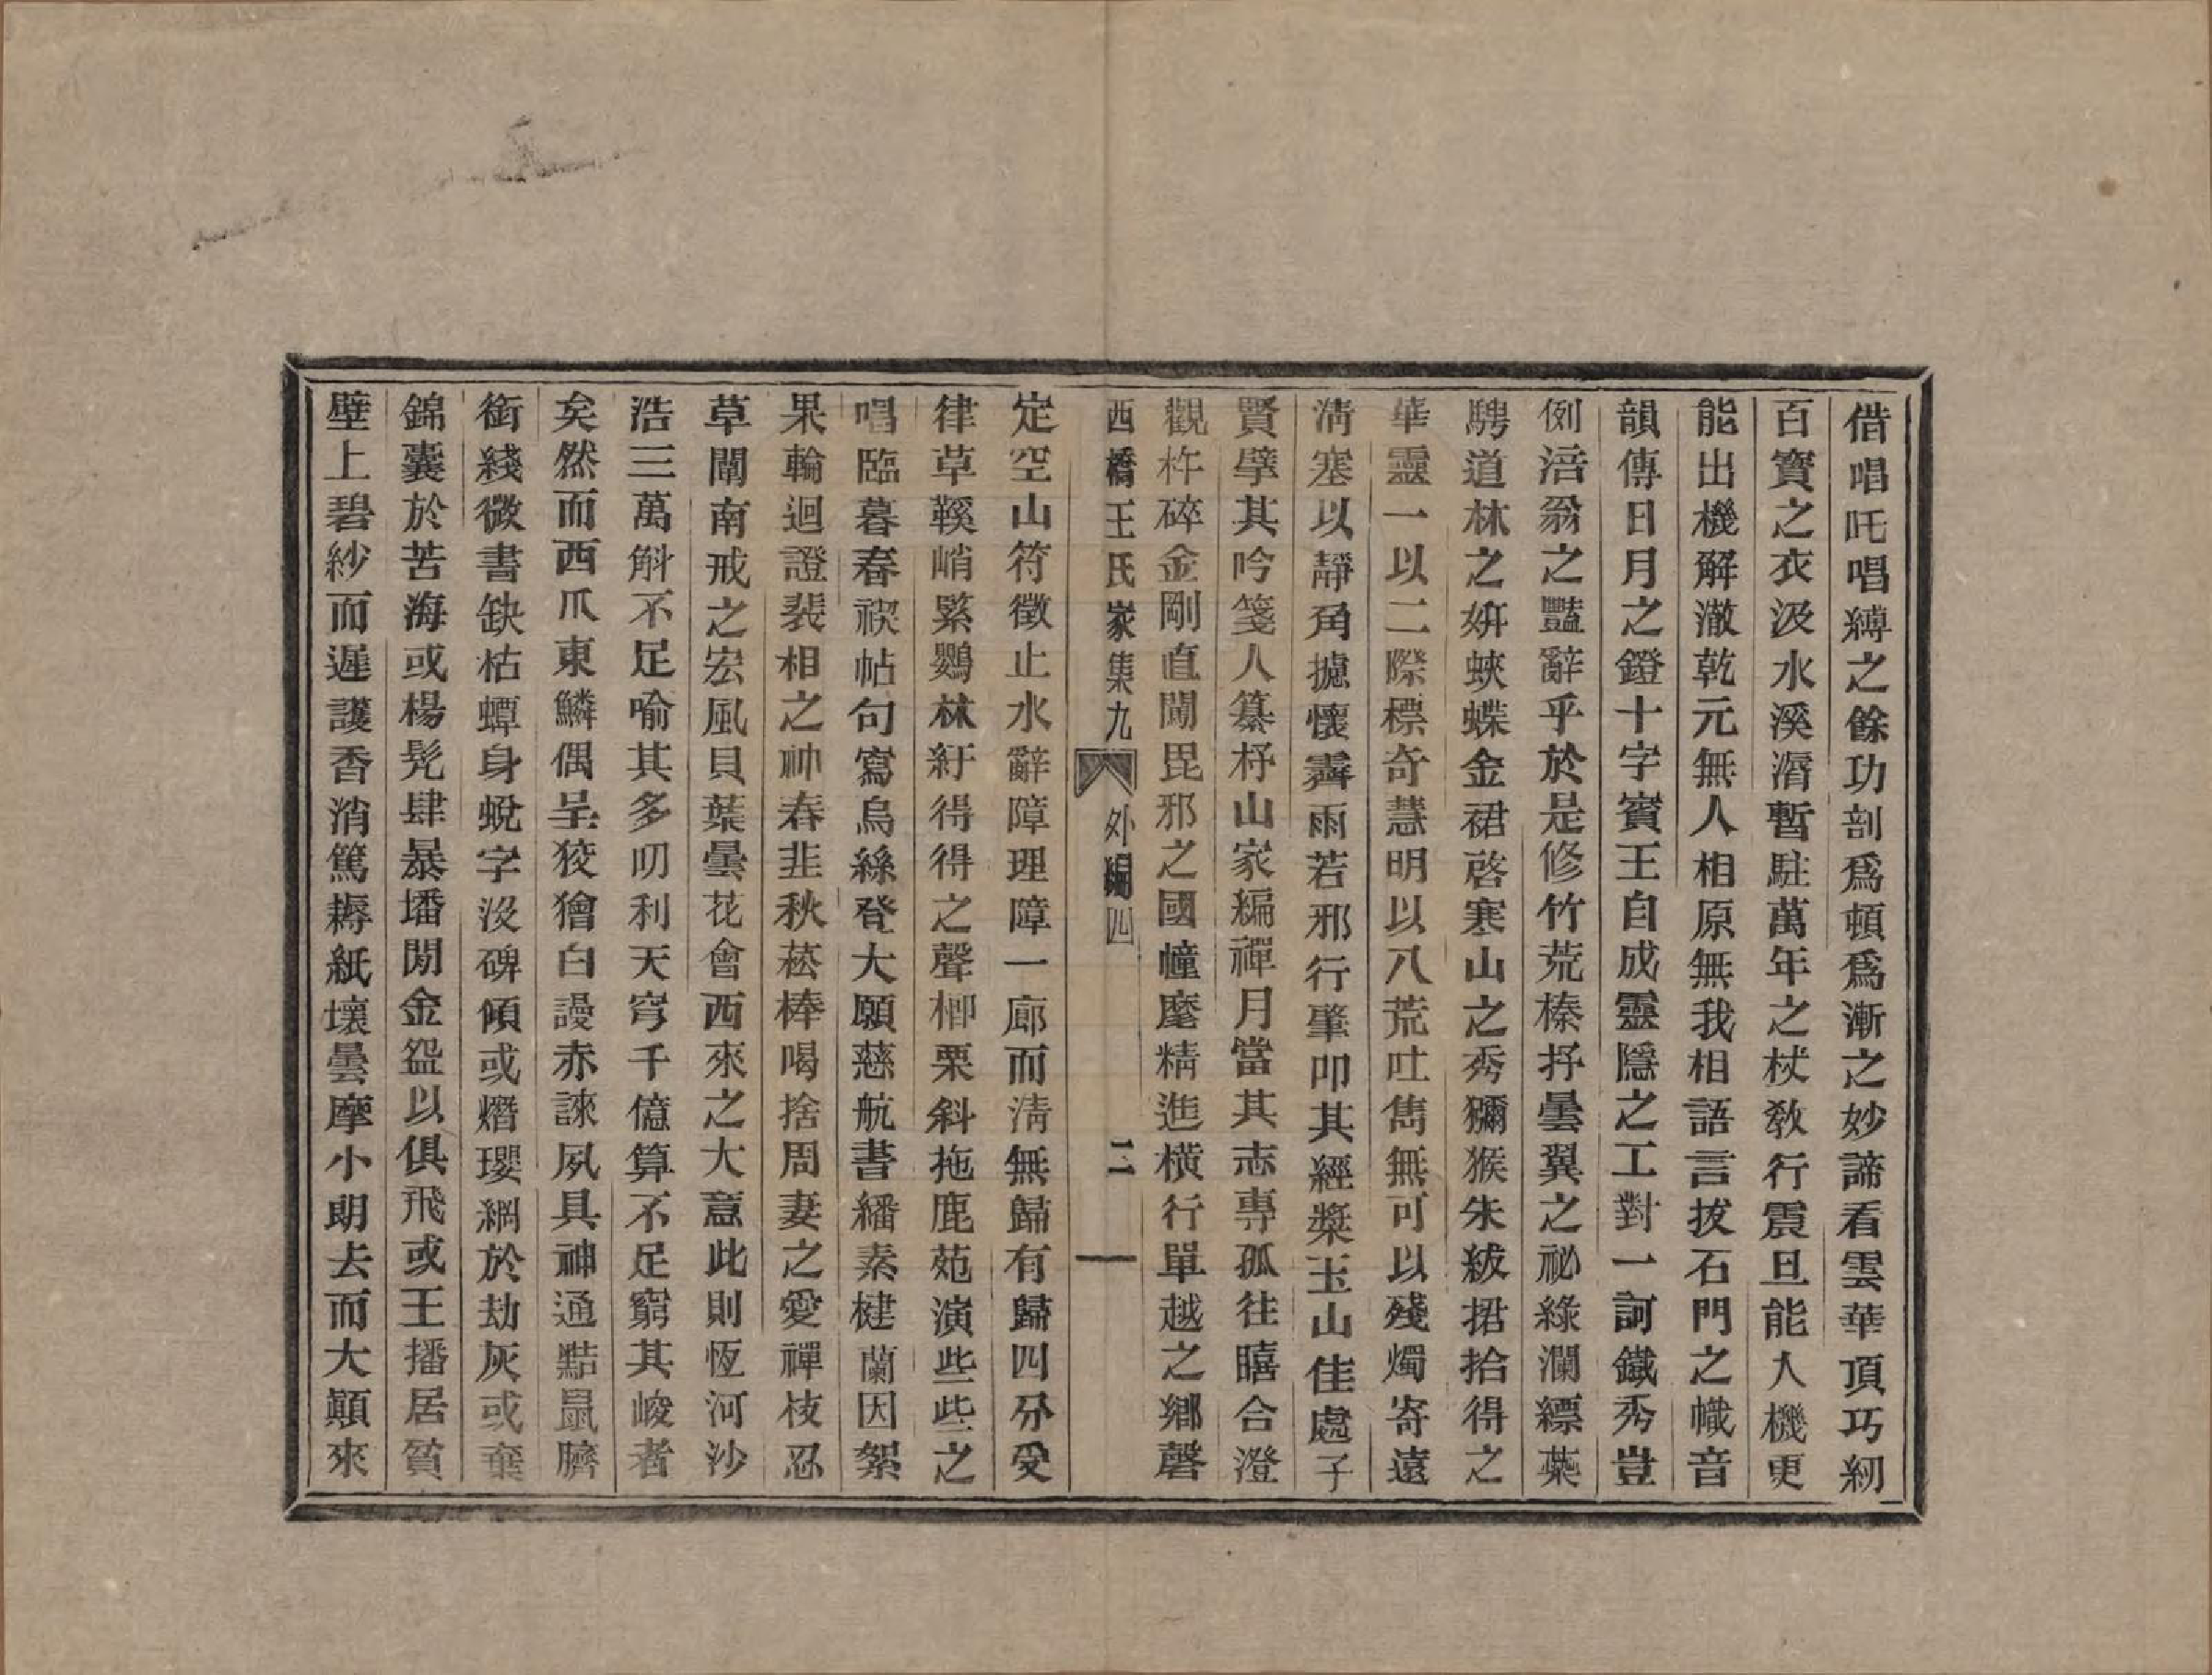 借唱吒唱縛之餘功剖爲頓爲漸之妙諦看雲華頂巧紉
百寶之衣汲水溪漘暫駐萬年之杖敎行震旦能人機更
能出機解澈乾元無人相原無我相語言拔石門之幟音
韻傳日月之鐙十字賓王自成靈隱之工對一訶鐵秀豈
例涪翁之豔辭乎於是修竹荒榛抒曇翼之祕綠瀾縹葉
騁道林之姸蛺蝶金裙啓寒山之秀獼猴朱紱捃拾得之
華靈一以二際標奇慧明以八荒吐雋無可以殘燭寄遠
淸塞以靜角攄懷霽雨若邪行肇叩其經槳玉山佳處子
賢擘其吟箋人纂杼山家編禪月當其志專孤往瞦合澄
觀杵碎金剛直闖毘邪之國幢麾精進橫行單越之鄕磬
西橋王氏家集九 外編四 二
定空山符徵止水辭障理障一廓而淸無歸有歸四分受
律草鞵峭緊鸚林紆得得之聲楖栗斜拖鹿苑演些些之
唱臨暮春禊帖句寫烏絲發大願慈航書繙素楗蘭因絮
果輪迴證裴相之神春韭秋菘棒喝捨周妻之愛禪枝忍
草闡南戒之宏風貝葉曇花會西來之大意此則恆河沙
浩三萬斛不足喻其多忉利天穹千億算不足窮其峻者
矣然而西爪東鱗偶呈狡獪白謾赤諫夙具神通黠鼠臍
銜綫微書缺枯蟫身蛻字沒碑傾或熸瓔綱於劫灰或棄
錦囊於苦海或楊髡肆暴墦閒金盌以俱飛或王播居貧
壁上碧紗而遲護香消篤耨紙壞曇摩小朗去而大顚來